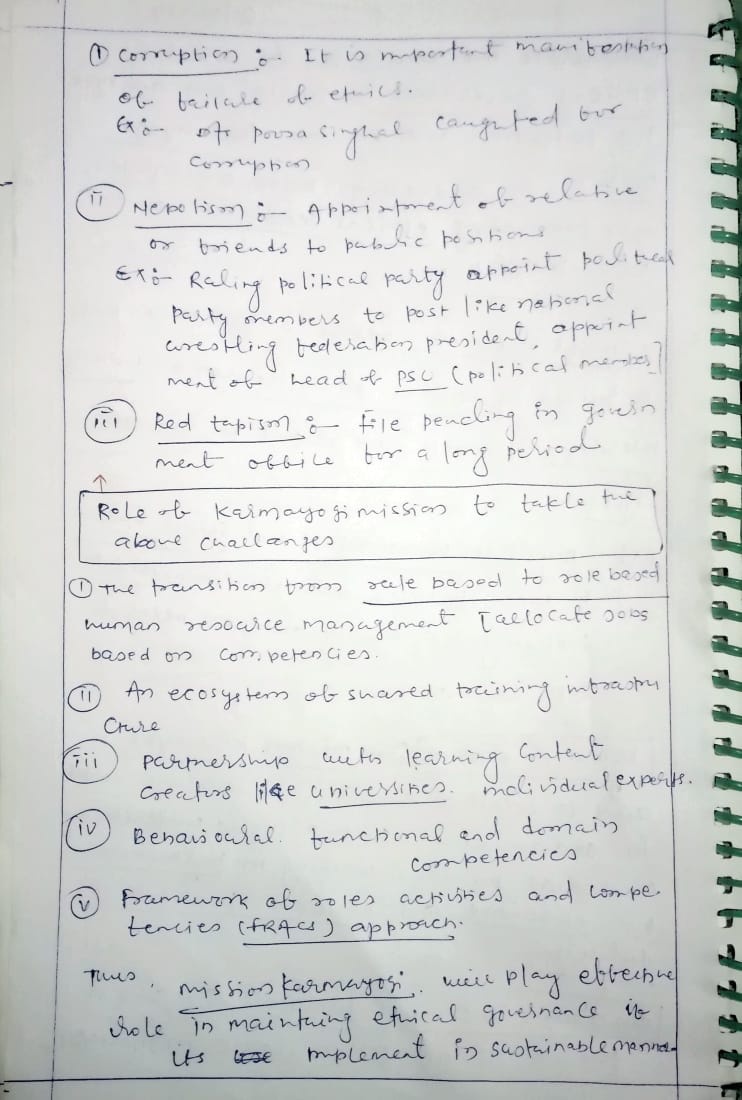 ① Corruption :- It is important manifestation
of failure of ethics.
Ex:- Pooja Singhal caughted for
corruption
ii Nepotism :- Appointment of relative
or friends to public positions
Ex:- Ruling political party appoint political
party members to post like national
wrestling federation president, appoint
ment of head of PSU (political member)
iii Red tapism :- File pending in govern
ment office for a long period
Role of Karmayogi mission to takle the
above challanges
① The transition from rule based to role based
human resource management [allocate jobs
based on competencies.
ii An ecosystem of shared training infrastru
cture
iii partnership with learning content
creators like universities. individual experts.
iv Behavioural. functional and domain
competencies
v Framework of roles activities and compe
tencies (FRACs) approach.
Thus, mission Karmayogi. will play effective
role in maintaing ethical governance if
its implement in sustainable manner.